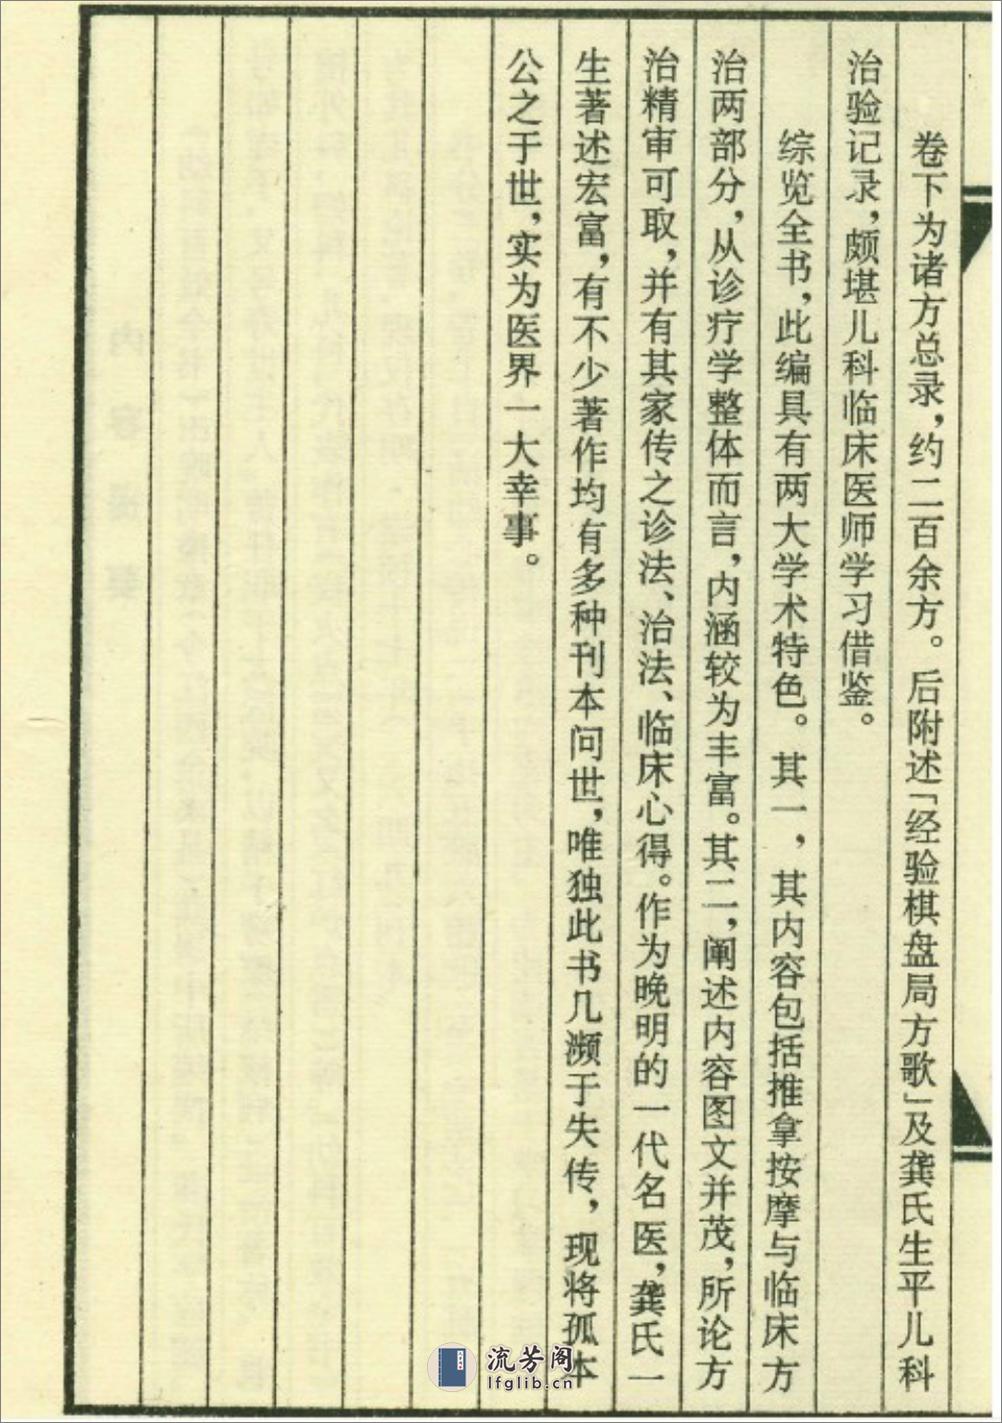 卷下为诸方总录，约二百余方。后附述「经验棋盘局方歌」及龚氏生平儿科
治验记录，颇堪儿科临床医师学习借鉴。
综览全书，此编具有两大学术特色。其一，其内容包括推拿按摩与临床方
治两部分，从诊疗学整体而言，内涵较为丰富。其二，阐述内容图文并茂，所论方
治精审可取，并有其家传之诊法、治法、临床心得。作为晚明的一代名医，龚氏一
生著述宏富，有不少著作均有多种刊本问世，唯独此书几濒于失传，现将孤本
公之于世，实为医界一大幸事。
内容提要
流芳阁
lfglib.cn